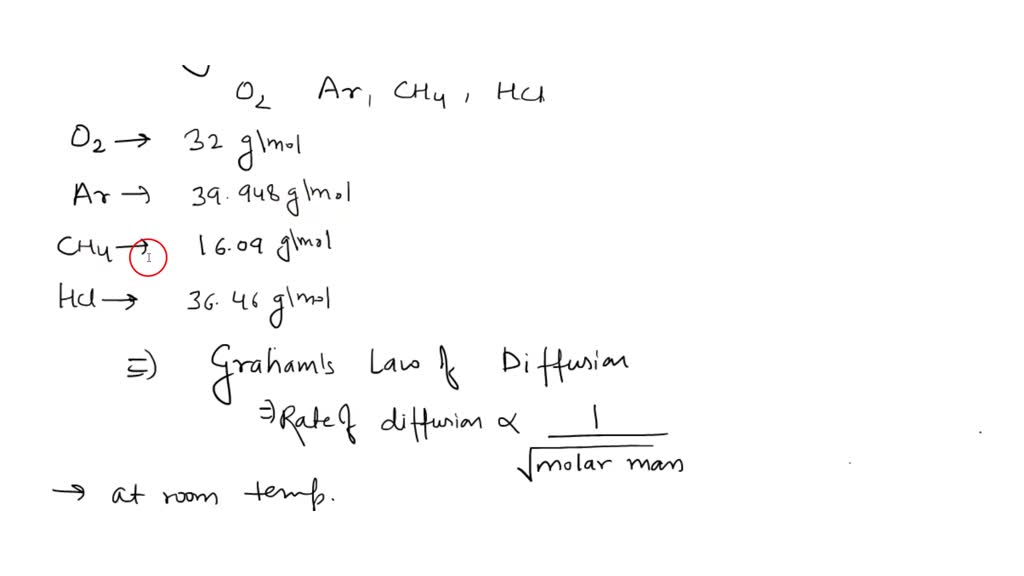 O₂ Ar, CH4, HCl
O₂ → 32 g/mol
Ar → 39.948 g/mol
CH4 → 16.09 g/mol
HCl → 36.46 g/mol
⇒ Graham's Law of Diffusion
⇒ Rate of diffusion ∝ 1/√molar mass
→ at room temp.